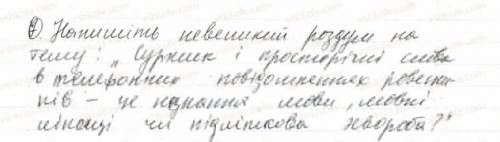 0. Напишіть невеликий роздум на
тему: „Суржик і просторічні слова
в телефонних повідомленнях ровесни
ків – це незнання мови, мовні
лінощі чи підліткова хвороба?"